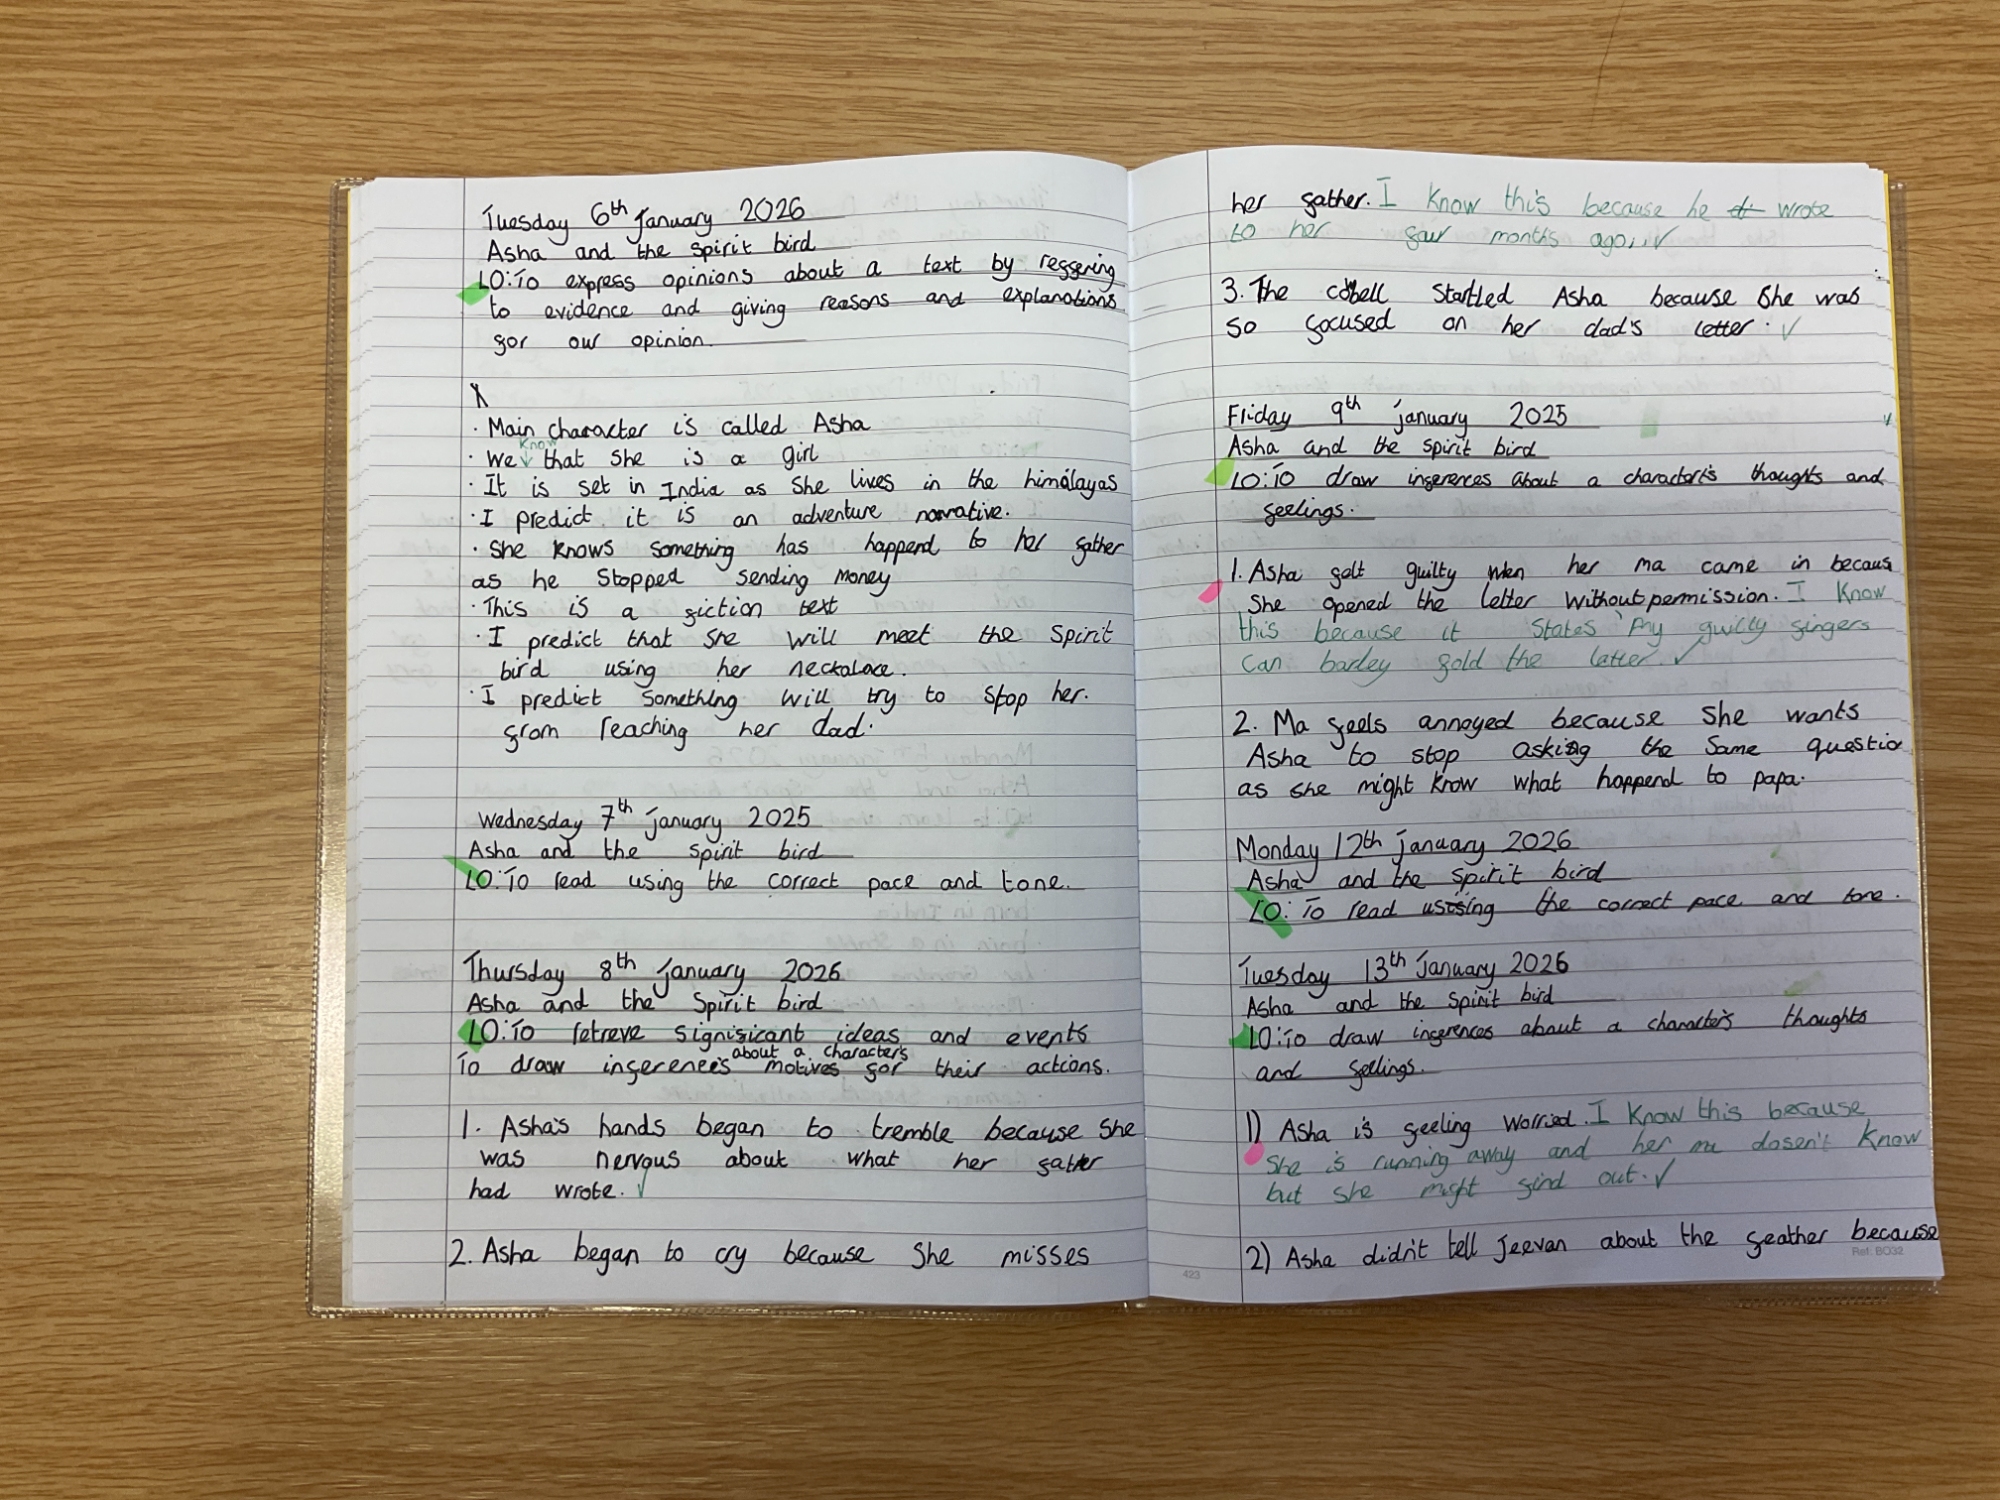 Tuesday 6th January 2026
Asha and the spirit bird
LO: To express opinions about a text by reffering
to evidence and giving reasons and explanations
for our opinion.
· Main character is called Asha
know
· We that she is a girl
· It is set in India as she lives in the himalayas
· I predict it is an adventure narrative.
· She knows something has happend to her father
as he stopped sending money
· This is a fiction text
· I predict that she will meet the spirit
bird using her neckalace.
· I predict something will try to stop her.
from reaching her dad.
Wednesday 7th January 2025
Asha and the spirit bird
LO: To read using the correct pace and tone.
Thursday 8th January 2026
Asha and the Spirit bird
LO: To retreve significant ideas and events
about a character's
To draw inferences motives for their actions.
1. Asha's hands began to tremble because she
was nervous about what her father
had wrote.
2. Asha began to cry because she misses
her father. I know this because he wrote
to her four months ago,,
3. The cowbell startled Asha because she was
so focused on her dad's letter.
Friday 9th january 2025
Asha and the spirit bird
LO: To draw inferences about a character's thoughts and
feelings.
1. Asha felt guilty when her ma came in becaus
she opened the letter without permission. I know
this because it states 'my guilty fingers
can barley fold the letter.
2. Ma feels annoyed because she wants
Asha to stop asking the same questio
as she might know what happend to papa.
Monday 12th january 2026
Asha and the spirit bird
LO: To read using the correct pace and tone.
Tuesday 13th January 2026
Asha and the spirit bird
LO: To draw inferences about a character's thoughts
and feelings.
1) Asha is feeling worried. I know this because
she is running away and her ma dosen't know
but she might find out.
2) Asha didn't tell Jeevan about the feather because
423
Ref: BO32